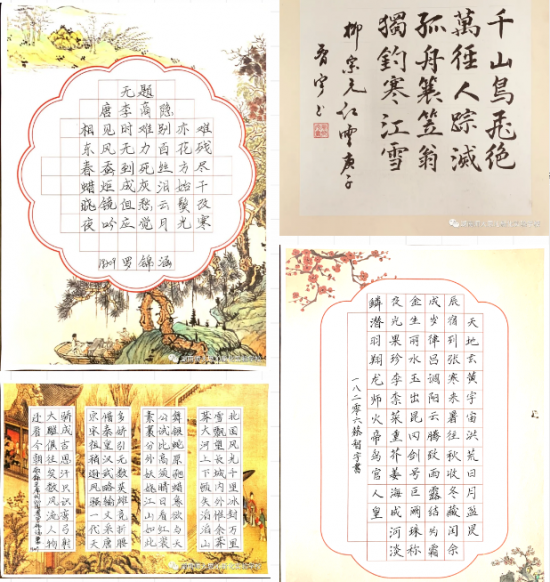 无题
唐李商隐
相见时难别亦难
东风无力百花残
春蚕到死丝方尽
蜡炬成灰泪始干
晓镜但愁云鬓改
夜吟应觉月光寒
锦涵
千山鳥飛絶
萬徑人踪滅
孤舟蓑笠翁
獨釣寒江雪
柳宗元江雪庚子
北国风光千里冰封万里
雪飘望长城内外惟余莽
莽大河上下顿失滔滔山
舞银蛇原驰蜡象欲与天
公试比高须晴日看红装
素裹分外妖娆江山如此
多娇引无数英雄竞折腰
惜秦皇汉武略输文采唐
宗宋祖稍逊风骚一代天
骄成吉思汗只识弯弓射
大雕俱往矣数风流人物
还看今朝
天地玄黄宇宙洪荒日月盈昃
辰宿列张寒来暑往秋收冬藏闰余
成岁律吕调阳云腾致雨露结为霜
金生丽水玉出昆冈剑号巨阙珠称
夜光果珍李柰菜重芥姜海咸河淡
鳞潜羽翔龙师火帝鸟官人皇
一八二零六